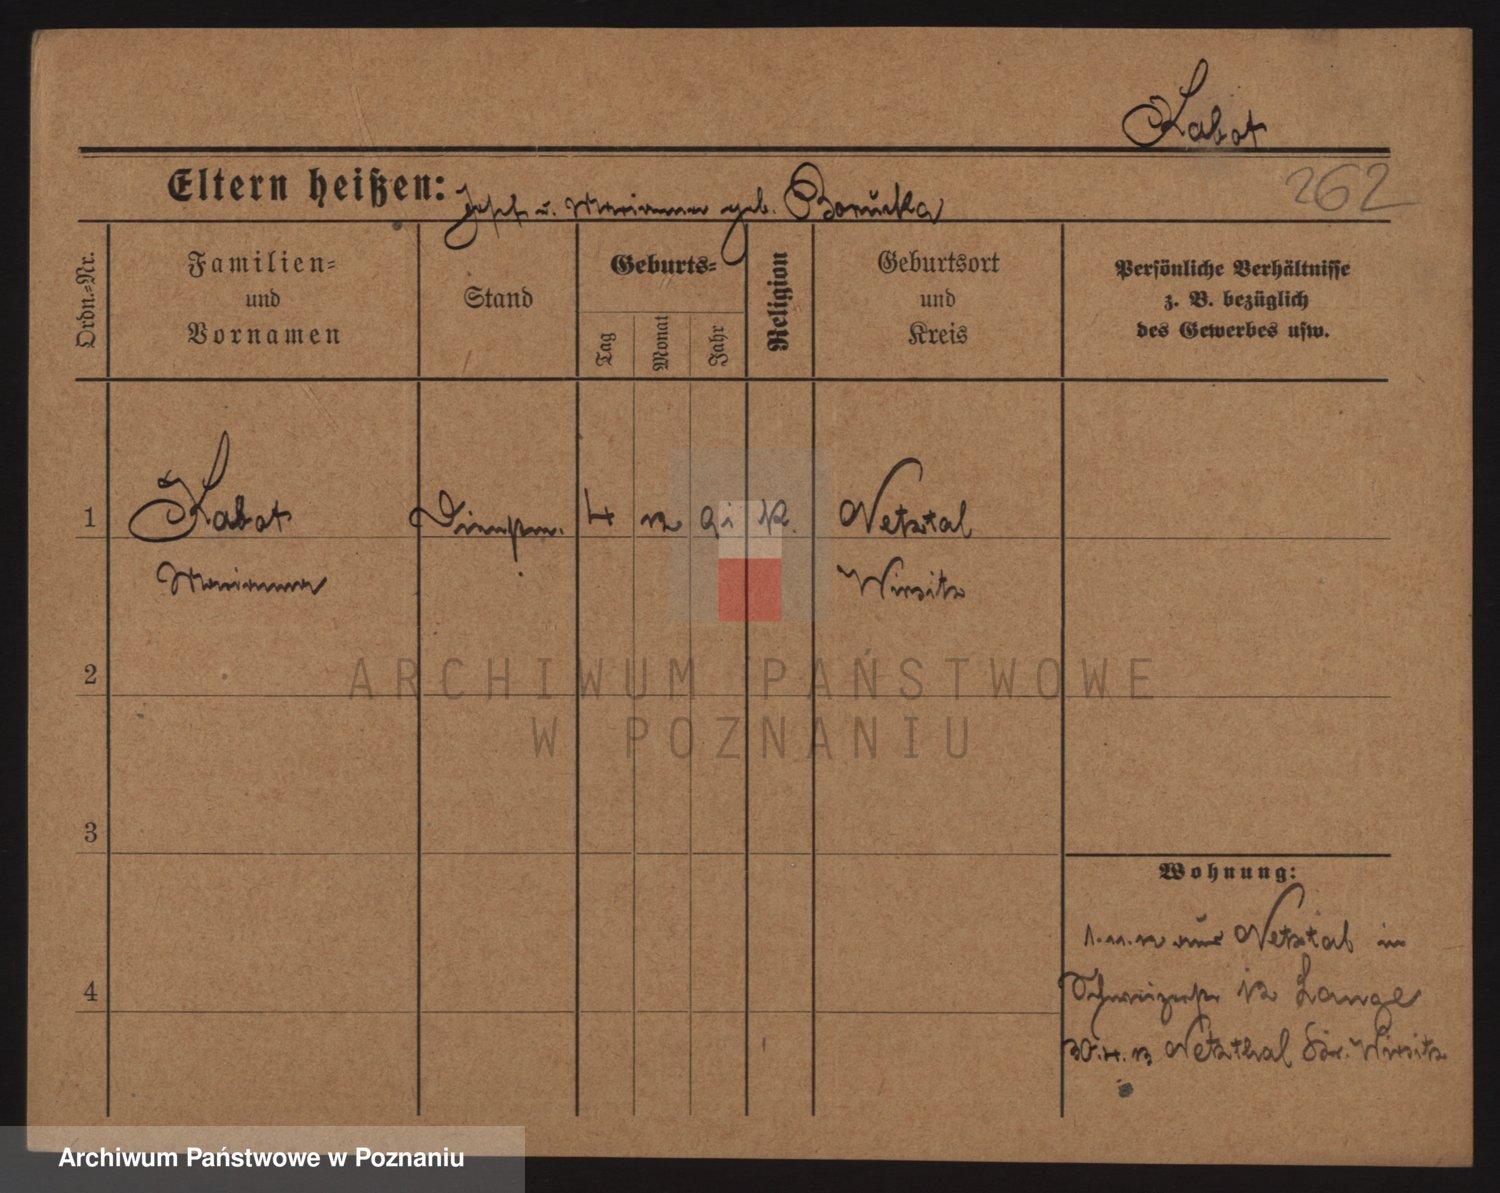 Kabat
Eltern heißen: Josef u. Marianna geb. Borucka
262
Ordn.-Nr.
Familien-
und
Vornamen
Stand
Geburts-
Tag
Monat
Jahr
Religion
Geburtsort
und
Kreis
Persönliche Verhältnisse
z. B. bezüglich
des Gewerbes usw.
1 Kabat 4 12 91 K. Netztal
Marianna Wirsitz
2
3
4
Wohnung:
1.11.12 aus Netztal in
Schweizerstr 12 Lange
30.4.13 Netzthal Kr. Wirsitz
ARCHIWUM PAŃSTWOWE
W POZNANIU
Archiwum Państwowe w Poznaniu